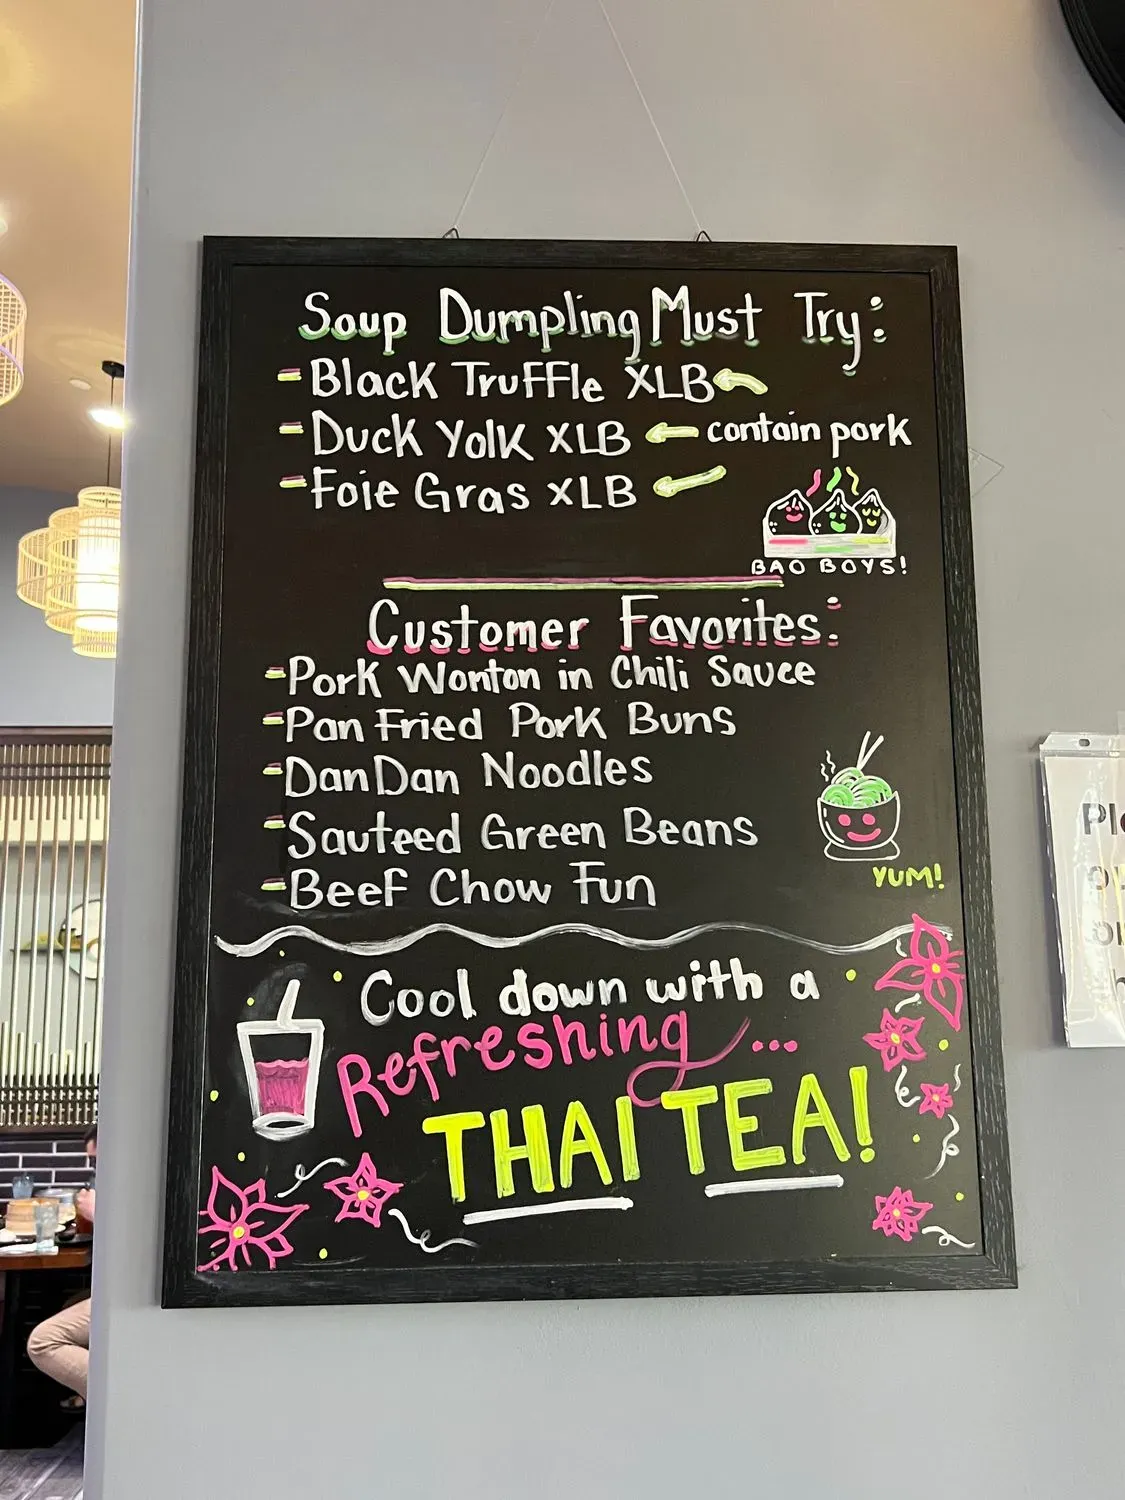 Soup Dumpling Must Try:
- Black Truffle XLB
- Duck Yolk XLB ← contain pork
- Foie Gras XLB
BAO BOYS!
Customer Favorites:
- Pork Wonton in Chili Sauce
- Pan Fried Pork Buns
- Dan Dan Noodles
- Sauteed Green Beans
- Beef Chow Fun
YUM!
Cool down with a
Refreshing ...
THAI TEA!